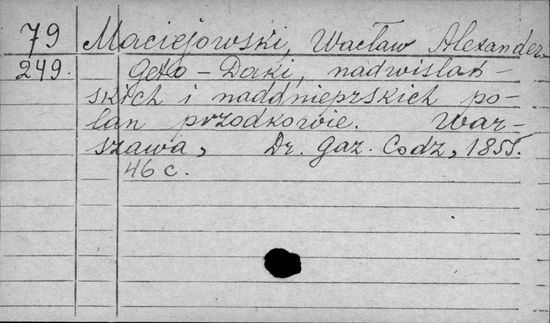 79 Maciejowski, Wacław Alexander.
249. Geto-Daki, nadwiślań-
skich i naddnieprskich po-
lan przodkowie. War-
szawa, Dr. Gaz. Codz, 1855.
46 c.